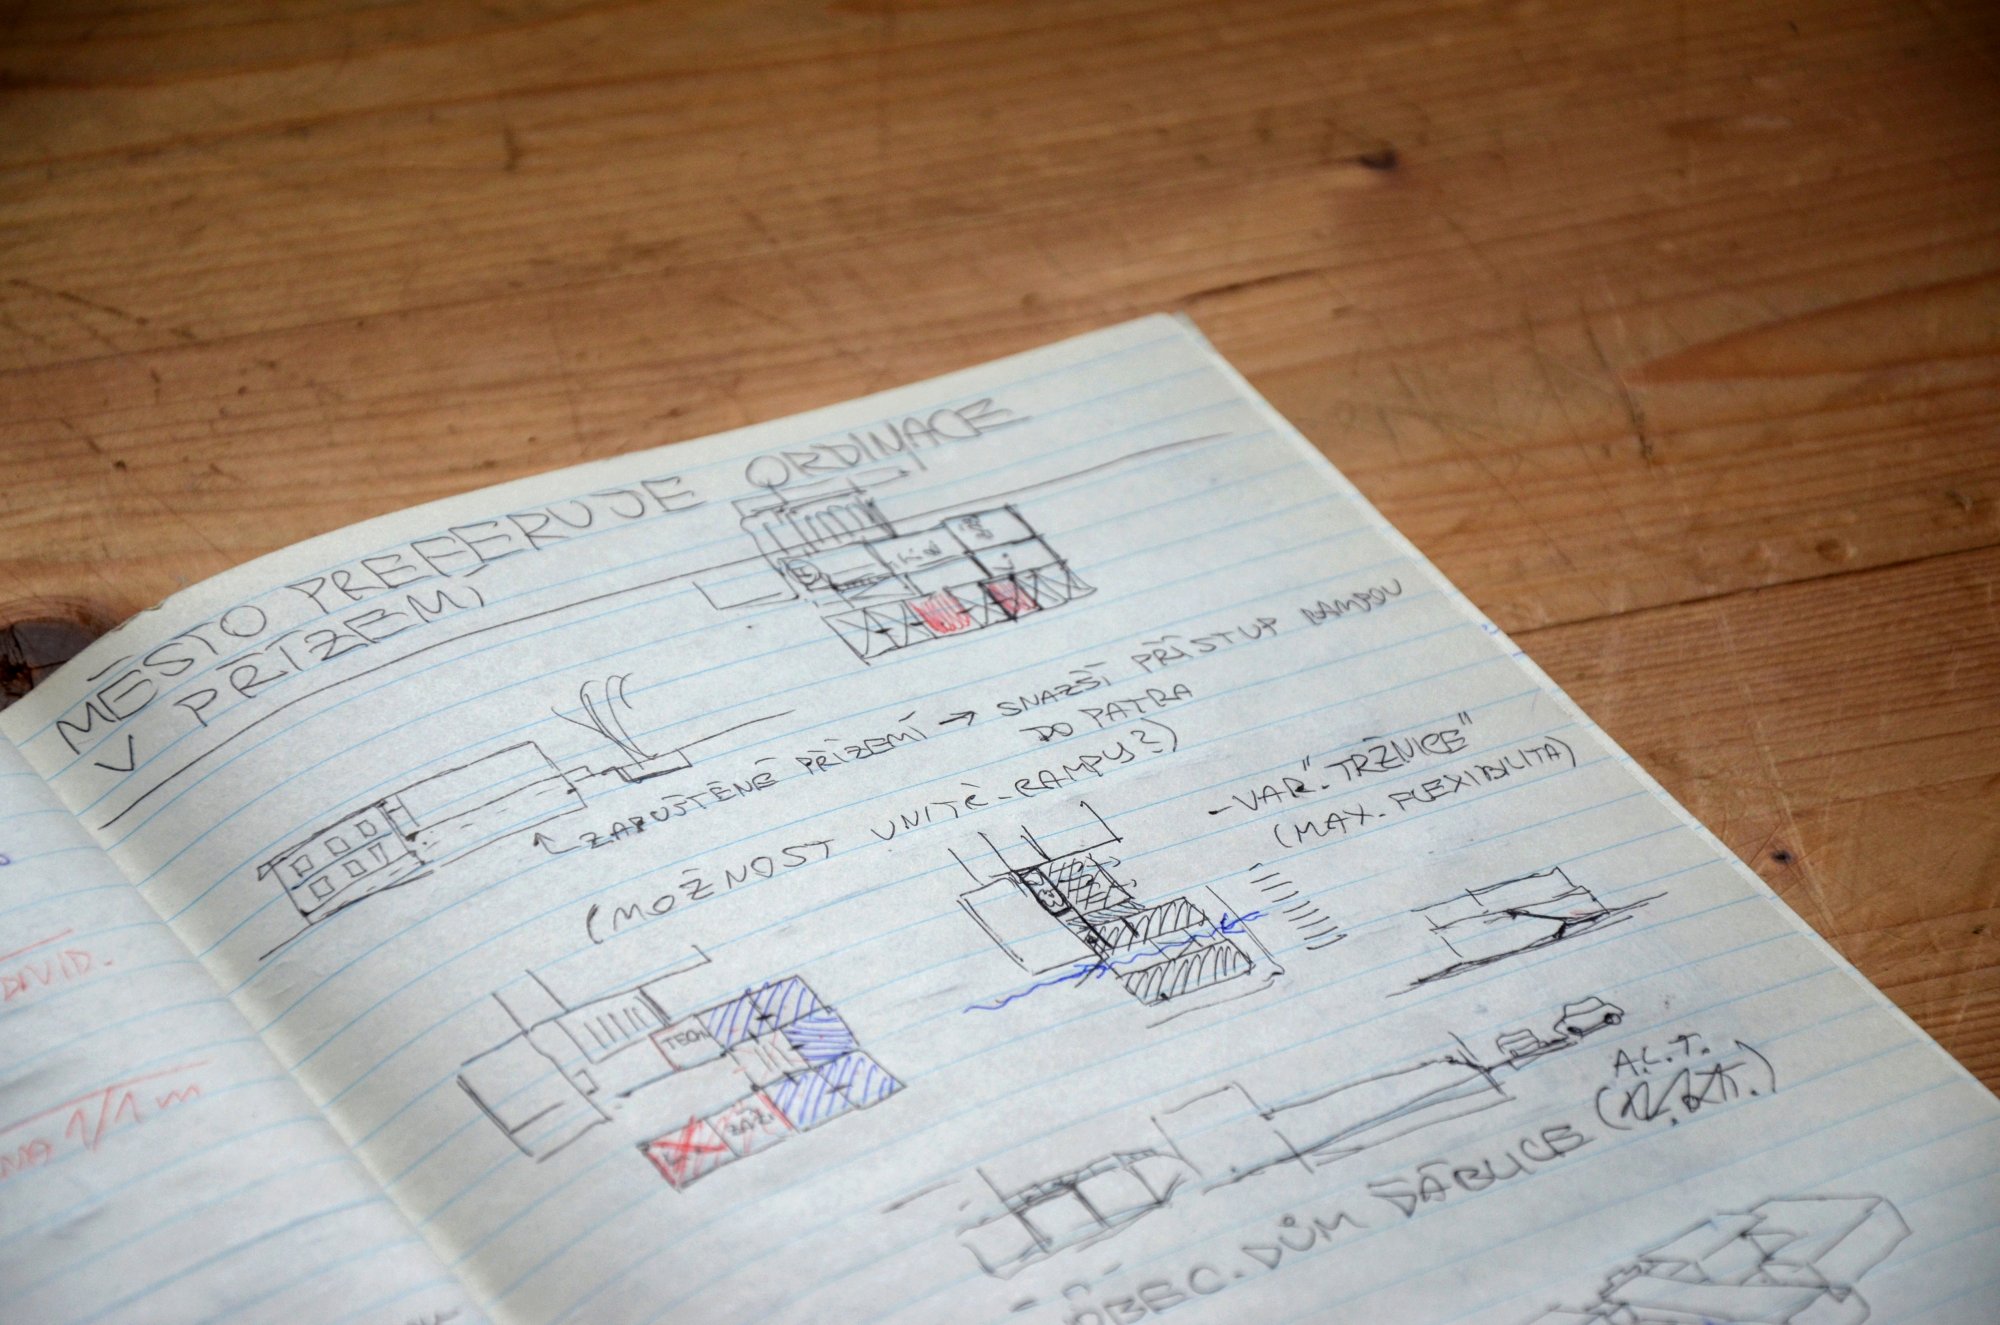 DAVID.
NA 1/1 m
MĚSTO PREFERUJE ORDINACE
V PŘÍZEMÍ
ZAPUŠTĚNÉ PŘÍZEMÍ → SNAZŠÍ PŘÍSTUP RAMPOU
DO PATRA
(MOŽNOST UNITŘ. RAMPY?)
- VAR. "TRŽNICE"
(MAX. FLEXIBILITA)
TECH
ZÁZ.
A.L.T.
OBEC. DŮM ĎÁBLICE